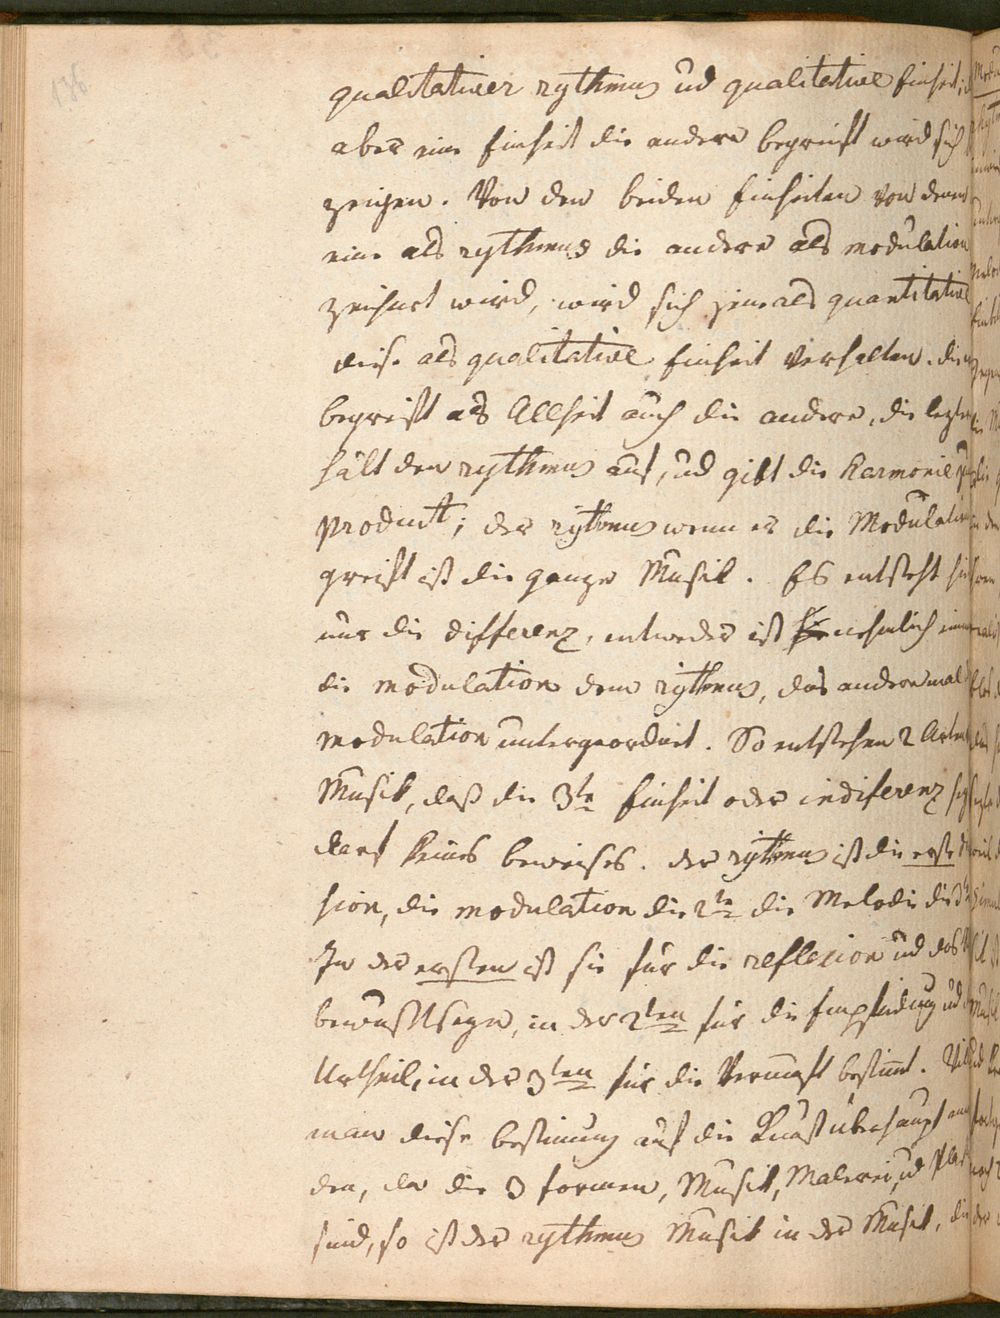 136
qualitativer rythmus ud qualitative Einheit,
aber eine Einheit die andere begreift wird sich
zeigen. Von den beiden Einheiten von denen
eine als rythmus die andere als modulation
zeichnet wird, wird sich jene als quantitative
diese als qualitative Einheit verhalten. die
begreift als Allheit auch die andere, die lezte
hält den rythmus auf, ud gibt die Harmonie zum
Product; der rythmus wenn er die Modulation
greift ist die ganze Musik. Es entsteht hier
nur die differenz, entweder ist nehmlich
die modulation dem rythmus, das andere mal
modulation untergeordnet. So entstehen 2 Arten
Musik, daß die 3te Einheit oder indiferenz sey
darf keines beweises. der rythmus ist die erste
sion, die modulation die 2te die Melodie die
In der ersten ist sie für die reflexion ud das
bewußtseyn, in der 2ten für die Empfindung ud
Urtheil, in der 3ten für die Vernunft bestimt. Will
man diese bestimung auf die Kunst überhaupt
den, da die 3 formen, Musik, Malerei, ud
sind, so ist der rythmus Musik in der Musik, die